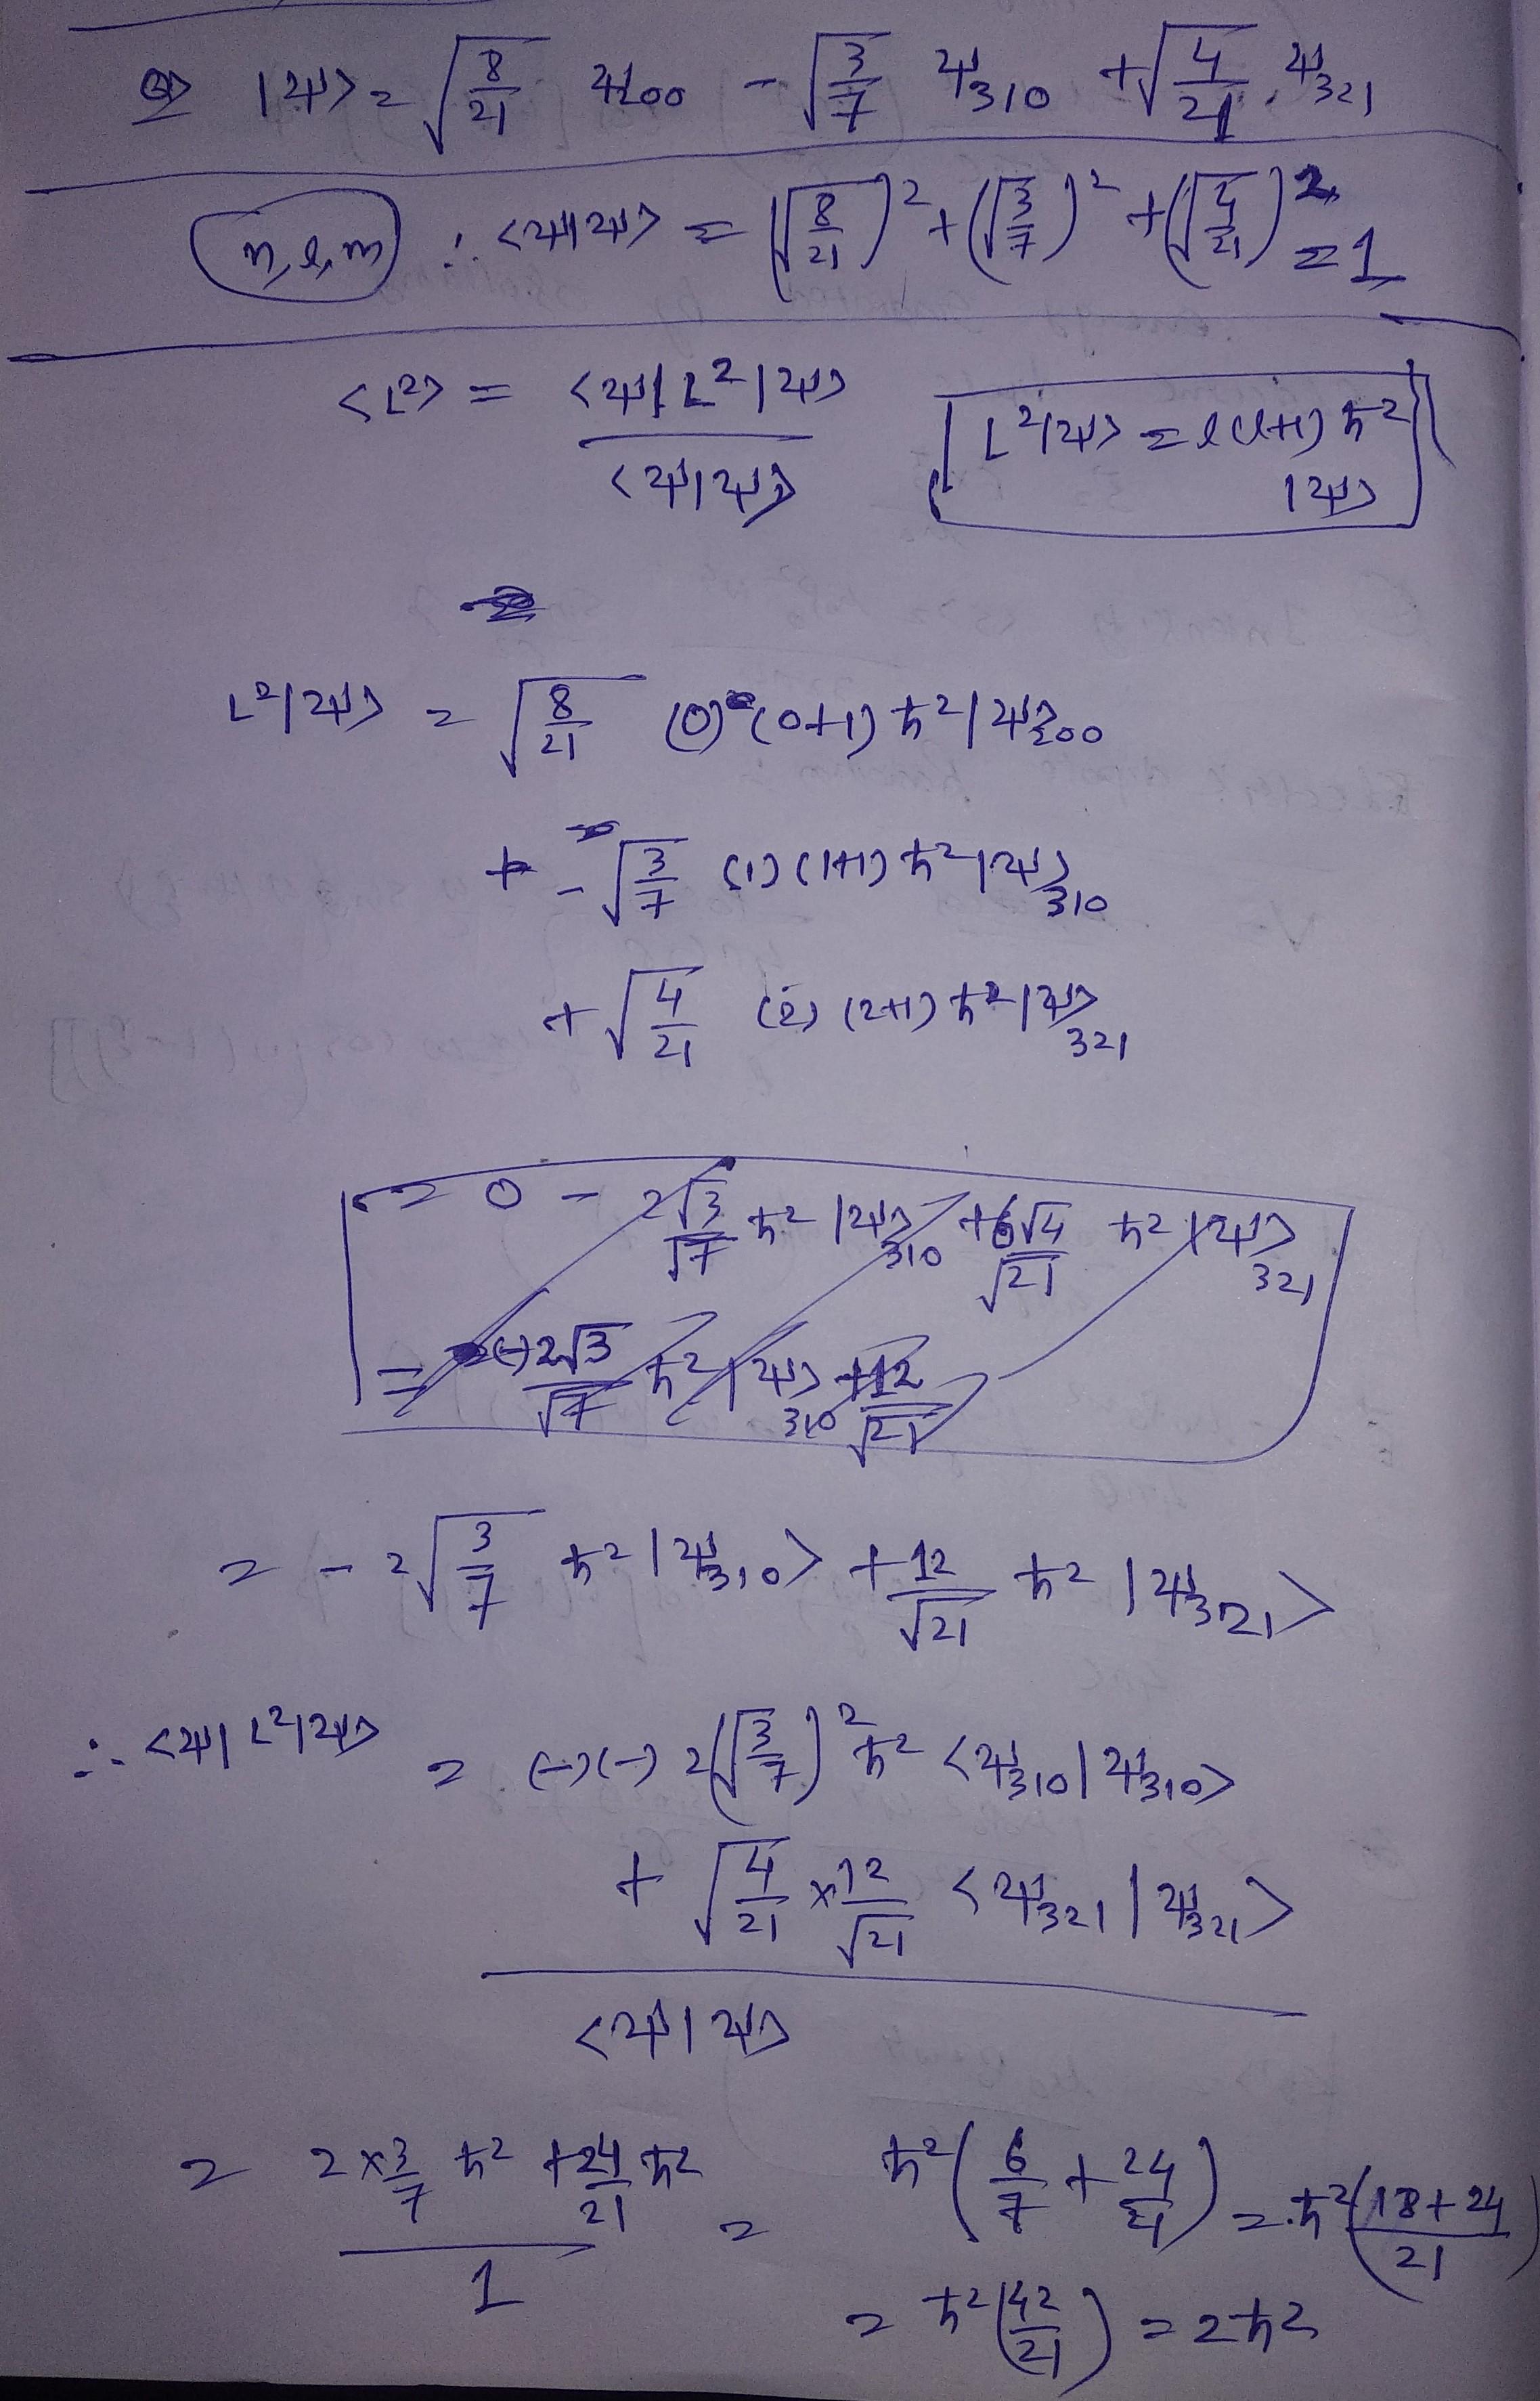 Q> |ψ> = √(8/21) ψ₂₀₀ - √(3/7) ψ₃₁₀ + √(4/21) . ψ₃₂₁
n, l, m ∴ <ψ|ψ> = (√(8/21))² + (√(3/7))² + (√(4/21))² = 1
<L²> = <ψ|L²|ψ> / <ψ|ψ>
L²|ψ> = l(l+1) ħ² |ψ>
L²|ψ> = √(8/21) (0)(0+1) ħ² |ψ>₂₀₀
+ - √(3/7) (1)(1+1) ħ² |ψ>₃₁₀
+ √(4/21) (2)(2+1) ħ² |ψ>₃₂₁
= 0 - 2√3/√7 ħ² |ψ>₃₁₀ + 6√4/√21 ħ² |ψ>₃₂₁
= (-)2√3/√7 ħ² |ψ>₃₁₀ + 12/√21
= - 2√(3/7) ħ² |ψ₃₁₀> + 12/√21 ħ² |ψ₃₂₁>
∴ <ψ|L²|ψ> = (-)(-) 2(√(3/7))² ħ² <ψ₃₁₀|ψ₃₁₀>
+ √(4/21) × 12/√21 <ψ₃₂₁|ψ₃₂₁>
<ψ|ψ>
= (2×3/7 ħ² + 24/21 ħ²) / 1 = ħ² (6/7 + 24/21) = ħ² (18+24 / 21)
= ħ² (42/21) = 2ħ²